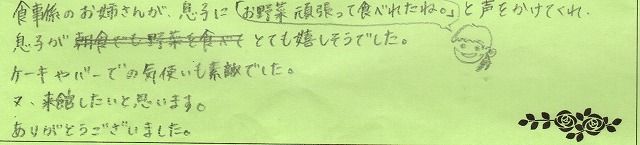 食事係のお姉さんが、息子に「お野菜 頑張って食べれたね。」と声をかけてくれ、
息子が 朝食でも野菜を食べて とても嬉しそうでした。
ケーキやバーでの気使いも素敵でした。
又、来館したいと思います。
ありがとうございました。